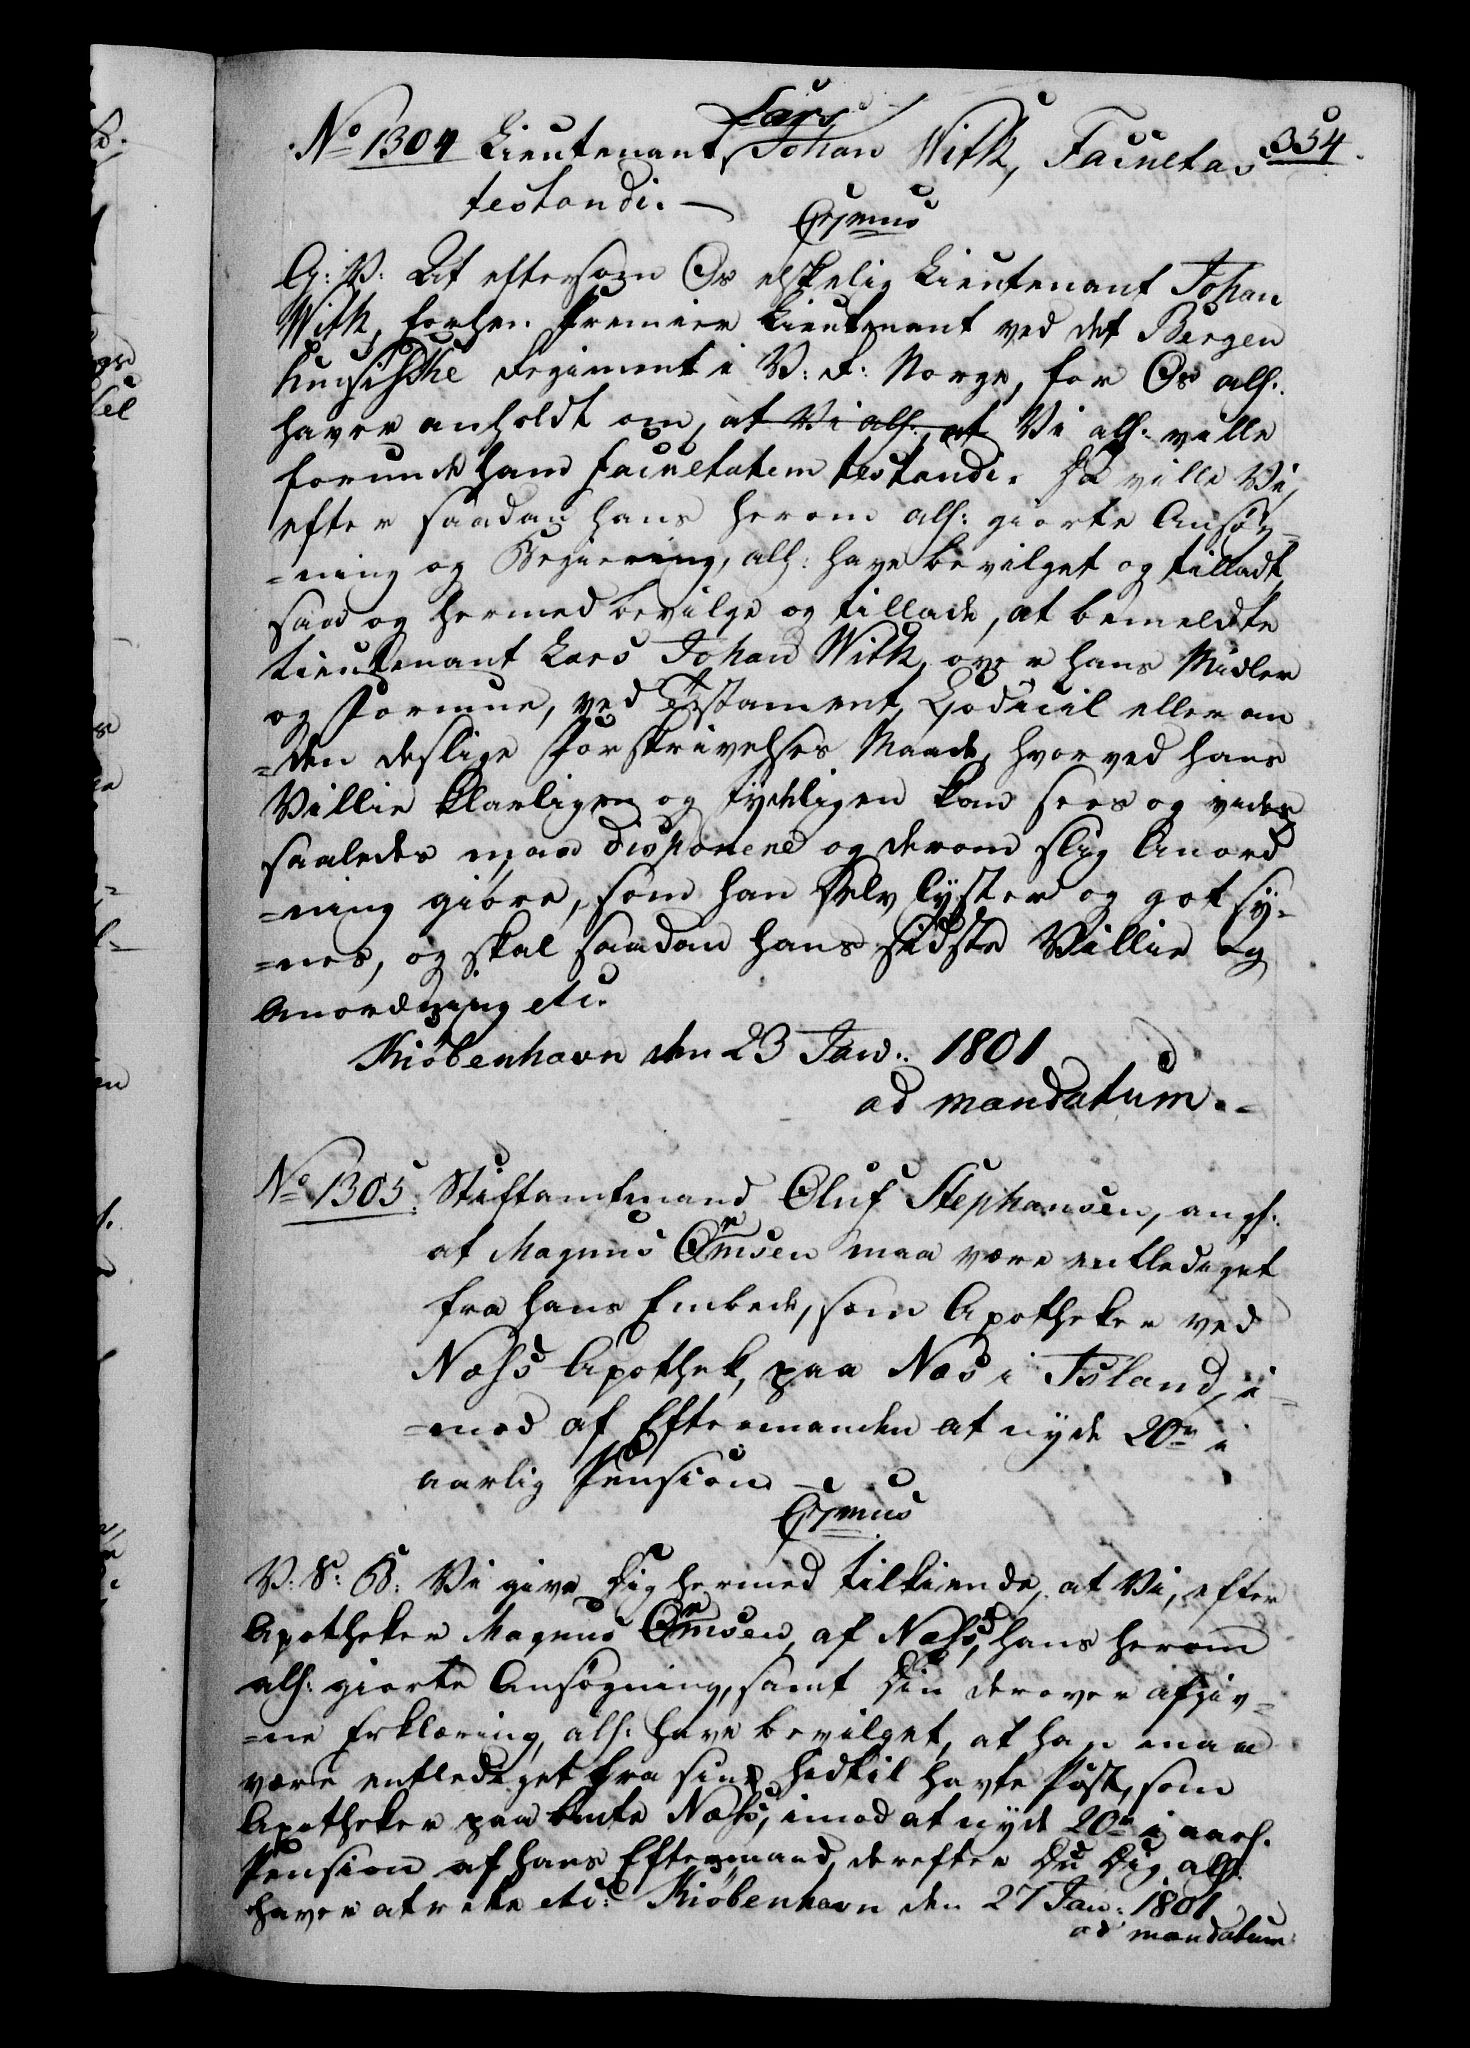 Lars
No 1304 Lieutenant, Johan With, Facultas 354.
testandi. —
C 7mus
G: V: At eftersom Os elskelig Lieutenant Johan
With, forhen Premier Lieutenant ved det Bergen
huusiske Regiment i V: R: Norge, for Os alh:
haver anholdt om, at Vi alh: at Vi alh: ville
forunde ham facultatem testandi. Da ville Vi,
efter saadan hans herom alh: giorte Ansøg-
-ning og Begiering, alh: have bevilget og tilladt,
saa og hermed bevilge og tillade, at bemeldte
Lieutenant Lars Johan With, over hans Midler
og Formue, ved Testament, Codicil eller an
-den deslige Forskrivelses Maade, hvorved hans
Villie klarligen og tydeligen kan sees og vides
saaledes maa disponere og derom slig Anord
-ning giøre, som han selv lyster og got sy-
-nes, og skal saadan hans sidste Villie og
Anordning etc.
Kiøbenhavn den 23 Jan: 1801
ad mandatum.
No 1305. Stiftamtmand Oluf Stephansen, angl:
at Magnus Ormsen maa være entlediget
fra hans Embede, som Apotheker ved
Næss Apothek, paa Næs i Island, i-
-mod af Eftermanden at nyde 20 r i
aarlig Pension.
C 7mus
V: S: B: Vi give Dig hermed tilkiende, at Vi, efter
Apotheker Magnus Ormsen, af Næss, hans herom
alh: giorte Ansøgning, samt Din derover afgiv-
-ne Erklæring, alh: have bevilget, at han maa
være entlediget fra sin hidtil havte Post, som
Apotheker paa bmte Næss, imod at nyde 20 r i aarl.
Pension af hans Eftermand, derefter Du Dig alh:
haver at rette etc: Kiøbenhavn den 27 Jan: 1801
ad mandatum